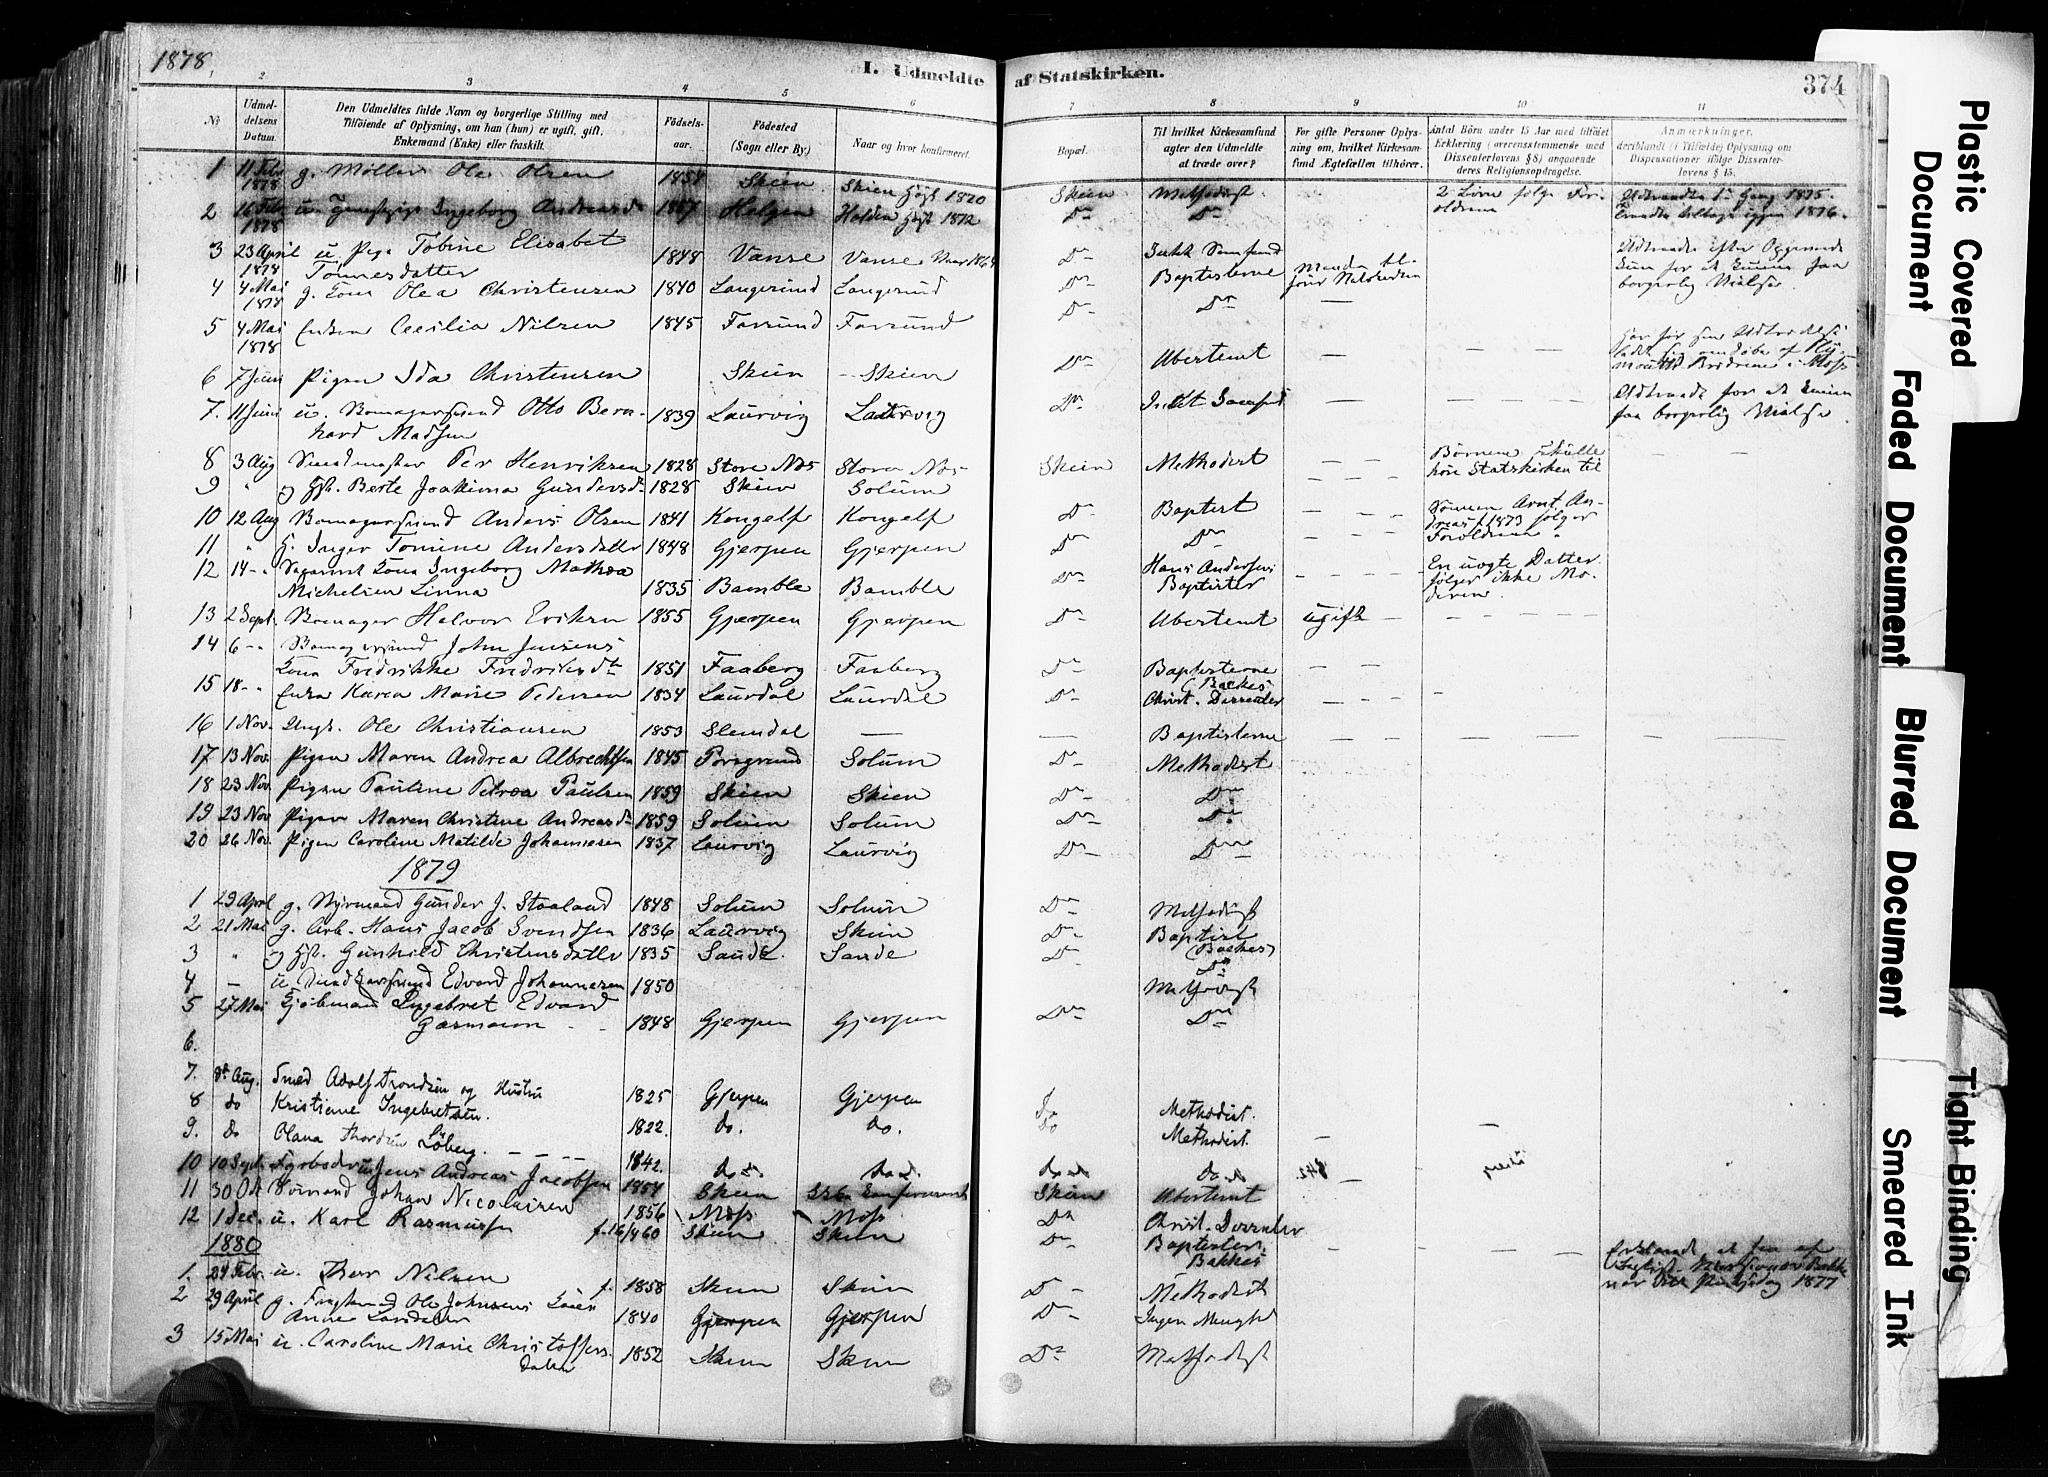 1878
I. Udmeldte af Statskirken.
374
2 3 4 5 6 7 8 9 10 11
№
Udmeldelsens Datum.
Den Udmeldtes fulde Navn og borgerlige Stilling med Tilföiende af Oplysning, om han (hun) er ugift, gift, Enkemand (Enke) eller fraskilt.
Födselsaar.
Födested (Sogn eller By.)
Naar og hvor konfirmeret.
Bopæl.
Til hvilket Kirkesamfund agter den Udmeldte at træde over?
For gifte Personer Oplysning om, hvilket Kirkesamfund Ægtefællen tilhörer.
Antal Börn under 15 Aar med tilföiet Erklæring (overensstemmende med Dissenterlovens § 8) angaaende deres Religionsopdragelse.
Anmærkninger, deriblandt (i Tilfælde) Oplysning om Dispensationer ifölge Dissenterlovens § 15.
1 11 Febr 1878 g. Möller Ole Olsen 1854 Skien Skien Höst 1870 Skien Methodist 2 Börn følge Forældrene Udtraadte 1ste Gang 1875.
2 16 Febr 1878 u. Ingeborg Andreasd. 1857 Helgen Holden Höst 1872 Dº Dº traadte tilbage igjen 1876.
3 23 April 1878 u. Pige Tobine Elisabet Tönnesdatter 1848 Vanse Vanse Dº Intet Samfund Udtraadt efter for at kunne faa borgerlig Vielse
4 4 Mai 1878 g. Kone Olea Christensen 1840 Langesund Langesund Dº Baptisterne
5 4 Mai 1878 Enken Cecilia Nilsen 1845 Farsund Farsund Dº Dº —
6 7 Juni Pigen Ida Christensen Skien Skien Dº Ubestemt — — — Har før sin Udtrædelse ladet sig omdøbe af i Moss
7. 11 Juni u. Bomagersvend Otto Bernhard Madsen 1839 Laurvig Laurvig Dº Intet Samfund — — — Udtraadt for at kunne faa borgerlig Vielse
8 3 Aug Per Henriksen 1828 Store Næs Store Næs Skien Methodist — — — Børnene skulle høre Statskirken til
9 " og Hst. Berte Joakima Gundersd. 1828 Skien Solum
10 12 Aug Bomagersvend Anders Olsen 1841 Kongelf Kongelf Dº Baptist — — — Sønnen Arnt Andreas f. 1873 følger Forældrene
11 " H. Inger Tomine Andersdatter 1848 Gjerpen Gjerpen Dº Dº
12 14 - " Kone Ingeborg Mathea Michelsen Linna 1835 Bamble Bamble Dº Hans Andersens Baptister — — — En uægte Datter følger ikke Moderen.
13 2 Sept. Bomager Halvor Eriksen 1855 Gjerpen Gjerpen Dº Ubestemt Ugift — — — —
14 6 - " Bomagersvend John Jensens Kone Fredrikke Fredriksdt. 1851 Faaberg Faaberg Dº Baptisterne (Backes) — — —
15 18 - " Enke Karen Marie Pedersen 1834 Laurdal Laurdal Dº Christ. Dissenter — — —
16 1 Nov. Ungk. Ole Christiansen 1853 Slemdal — — Baptisterne — — — —
17 13 Nov. Pigen Maren Andrea Albrechtsen 1845 Porsgrund Solum Dº Methodist
18 23 Nov. Pigen Pauline Petrea Paulsen 1859 Skien Skien Dº Dº
19 23 Nov Pigen Maren Christine Andreasd. 1859 Solum Solum Dº Dº
20 26 Nov. Pigen Caroline Matilde Johannesen 1837 Laurvig Laurvig Dº Dº
1879
1 29 April g. Styrmand Gunder J. Staaland 1848 Solum Solum Dº Methodist
2 21 Mai g. Arb. Hans Jacob Svendsen 1836 Laurvig Skien Dº Baptist (Backes)
3 " og Hst. Gunhild Christensdatter 1835 Sande Sande Dº Dº
4 — u. Edvard Johannesen 1850 Methodist
5 27 Mai Kjøbmand Ingebret Edvard Gasmann 1848 Gjerpen Gjerpen Dº Dº
6.
7. 8de Aug. Smed Adolf Trondsen og Hustru 1825 Gjerpen Gjerpen do Methodist.
8 do Kristiane Ingebretsen. 1822. do. do. do Methodist. — —
9. do Olana Thordsen Löberg. — — — 1842. do do do do do do do do
10 10 Sept. Jens Andreas Jacobsen 1854 Skien Skien Ubestemt —
11 30 Okt Sömand Johan Nicolaisen 1856 Moss Moss Dº Christ. Dissenter
12 1 Dec. u. Karl Rasmussen f. 16/4 60 Skien Skien Dº Baptister Bakkes — — — —
1880
1. 24 Febr. u. Thor Nilsen f. 1858 Skien Skien Dº Methodist
2 29 April g. Ole Johnsens Kone Anne Larsdatter 1840 Gjerpen Gjerpen Dº Ingen Menighed
3 15 Mai u. Caroline Marie Christoffersdatter 1852 Skien Skien Dº Methodist
Plastic Covered Document
Faded Document
Blurred Document
Tight Binding
Smeared Ink